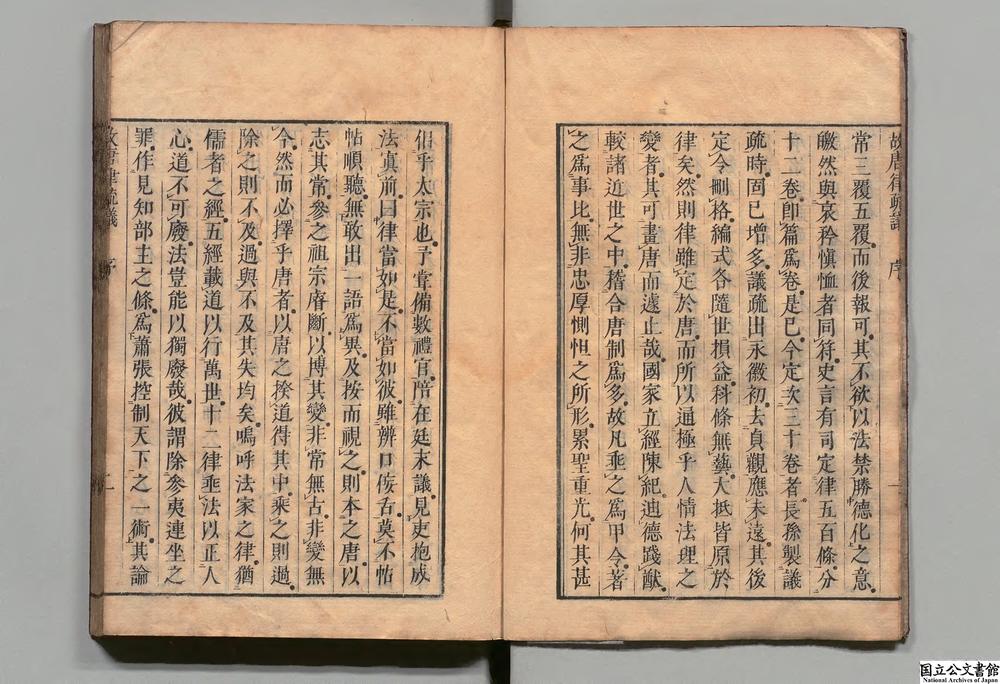 故唐律疏議 序
常三覆五覆而後報可其不欲以法禁勝德化之意
皦然與哀矜慎恤者同符史言有司定律五百條分
十二卷卽篇爲卷是已今定次三十卷者長孫製議
疏時固已增多議疏出永徽初去貞觀應未遠其後
定令刪格編式各隨世損益科條無藝大抵皆原於
律矣然則律雖定於唐而所以通極乎人情法理之
變者其可畫唐而遽止哉國家立經陳紀迪德踐猷
較諸近世之中稽合唐制爲多故凡乖之爲甲令著
之爲事比無非忠厚惻怛之所形累聖重光何其甚
侣乎太宗也予甞備數禮官陪在廷末議見吏抱成
法眞前曰律當如是不當如彼雖辨口佞舌莫不帖
帖順聽無敢出一語爲異及按而視之則本之唐以
志其常參之祖宗睿斷以博其變非常無古非變無
今然而必擇乎唐者以唐之揆道得其中乘之則過
除之則不及過與不及其失均矣嗚呼法家之律猶
儒者之經五經載道以行萬世十二律垂法以正人
心道不可廢法豈能以獨廢哉彼謂除參夷連坐之
罪作見知部主之條爲蕭張控制天下之一術其論
故唐律疏議 序 二
国立公文書館
National Archives of Japan